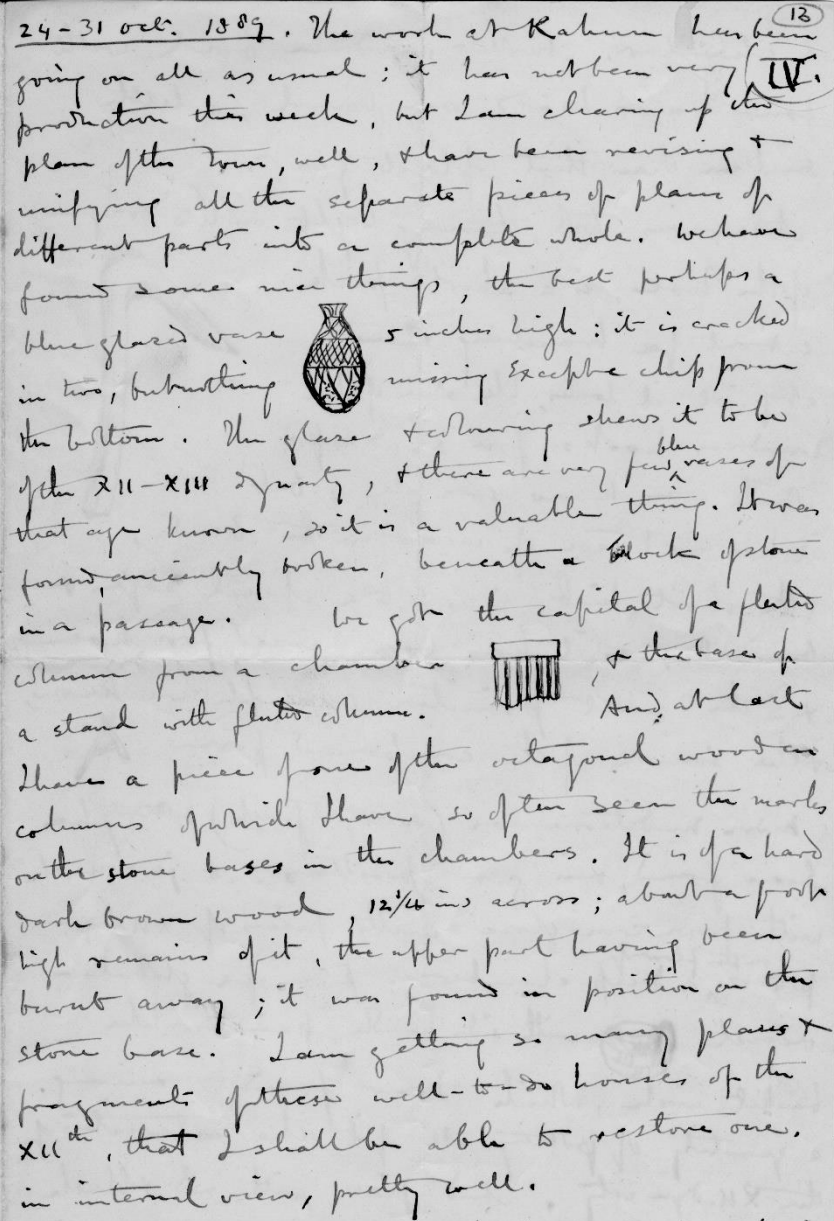 13
24-31 Oct. 1889. The work at Kahun has been
going on all as usual; it has not been very
IV.
production this week, but I am clearing up the
plan of the town, well, & have been revising &
unifying all the separate pieces of plans of
different parts into a complete whole. We have
found some nice things, the best perhaps a
blue glazed vase 5 inches high: it is cracked
in two, but nothing missing except a chip from
the bottom. The glaze & colouring shews it to be
of the XII-XIII dynasty, & there are very few blue vases of
that age known, so it is a valuable thing. It was
found, anciently broken, beneath a block of stone
in a passage. We got the capital of a fluted
column from a chamber, & the base of
a stand with fluted column. And, at last
I have a piece of one of the octagonal wooden
columns of which I have so often seen the marks
on the stone bases in the chambers. It is of a hard
dark brown wood, 12 1/4 ins across; about a foot
high remains of it, the upper part having been
burnt away; it was found in position on the
stone base. I am getting so many plans &
fragments of these well-to-do houses of the
XIIth, that I shall be able to restore one.
in internal view, pretty well.